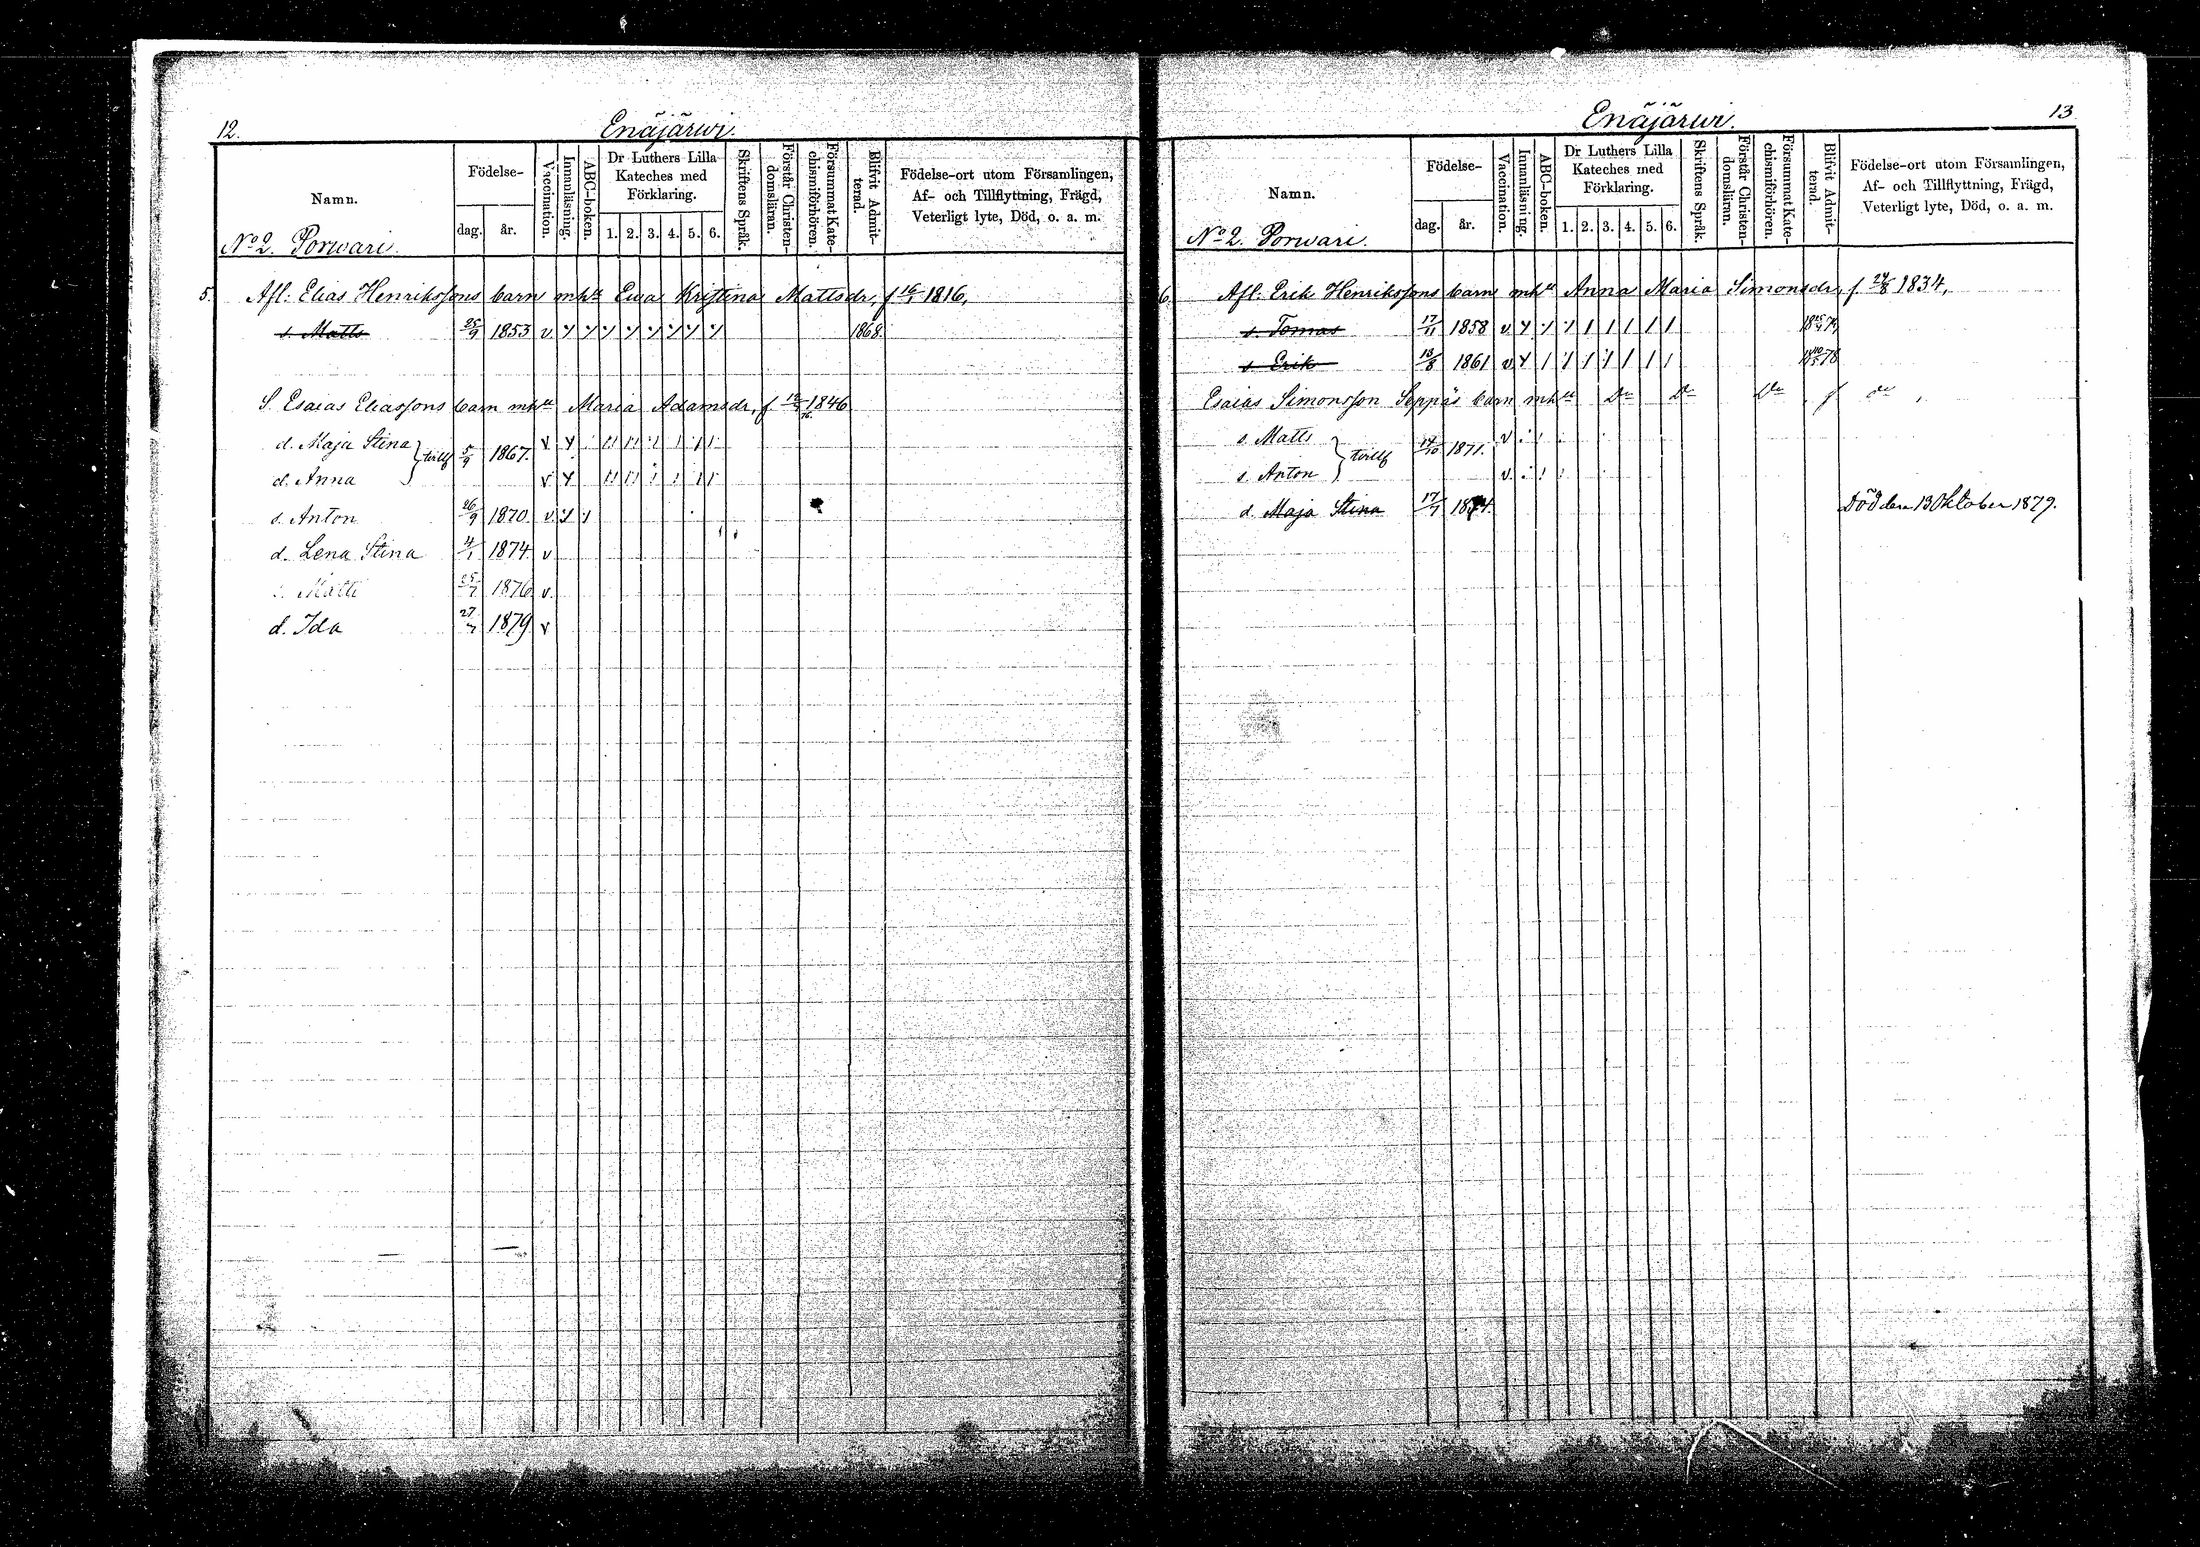 12.
Enäjärwi.
Namn.
Födelse-
dag. år.
Vaccination.
Innanläsning.
ABC-boken.
Dr Luthers Lilla Kateches med Förklaring.
1. 2. 3. 4. 5. 6.
Skriftens Språk.
Förstår Christendomsläran.
Försummat Katechismiförhören.
Blifvit Admitterad.
Födelse-ort utom Församlingen, Af- och Tillflyttning, Frägd, Veterligt lyte, Död, o. a. m.
No 2. Porwari.
5. Afl: Elias Henrikssons barn mh Ewa Kristina Mattsdr, f. 16/1 1816,
s. Matts 25/9 1853 v. 1868.
S. Esaias Eliassons barn mh Maria Adamsdr, f. 1846
d. Maja Stina } tvill 5/9 1867. v
d. Anna v
s. Anton 26/9 1870 v
d. Lena Stina 4/1 1874. v
s. Matti 25/7 1876 v.
d. Ida 27/7 1879 v
13
Enäjärwi.
Namn.
Födelse-
dag. år.
Vaccination.
Innanläsning.
ABC-boken.
Dr Luthers Lilla Kateches med Förklaring.
1. 2. 3. 4. 5. 6.
Skriftens Språk.
Förstår Christendomsläran.
Försummat Katechismiförhören.
Blifvit Admitterad.
Födelse-ort utom Församlingen, Af- och Tillflyttning, Frägd, Veterligt lyte, Död, o. a. m.
No 2. Porwari.
6. Afl. Erik Henrikssons barn mh Anna Maria Simonsdr, f. 24/8 1834,
s. Tomas 17/11 1858 v.
s. Erik 18/8 1861 v
Esaias Simonsson Seppäs barn mh Do Do Do f do,
s. Matts } tvill 14/10 1871. v
s. Anton v.
d. Maja Stina 17/7 Död den 13 Oktober 1879.